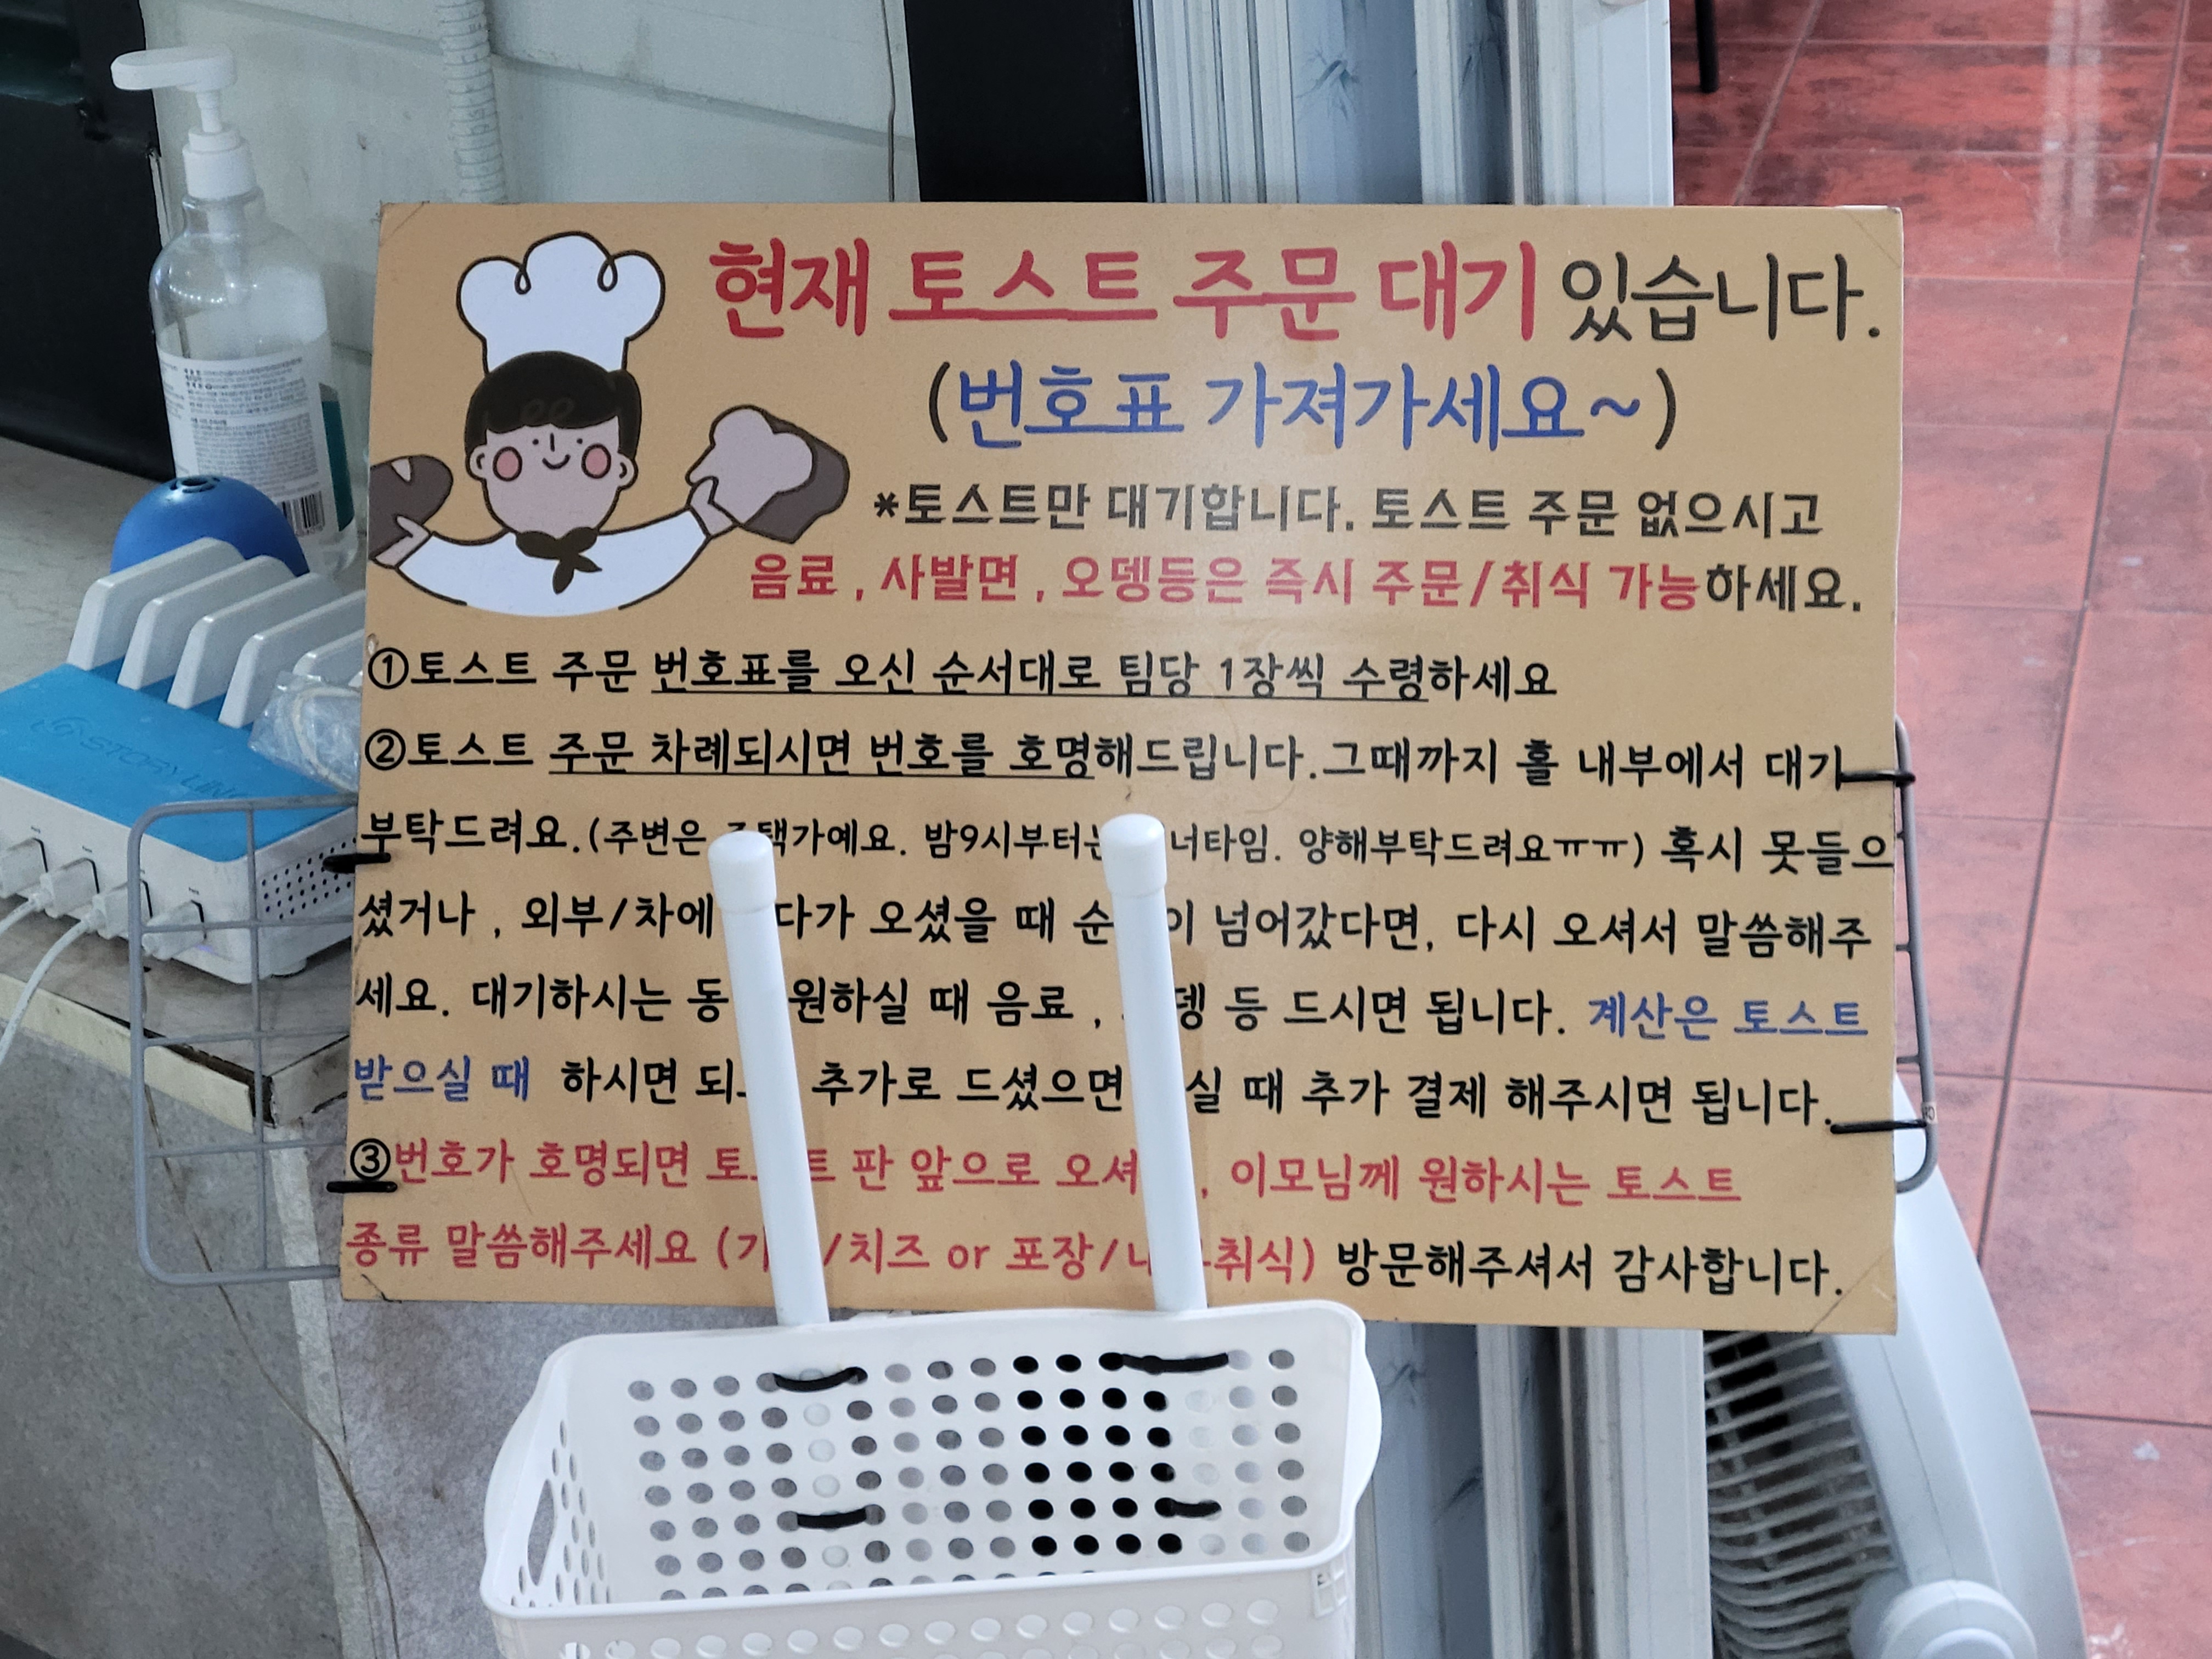 현재 토스트 주문 대기 있습니다.
(번호표 가져가세요~)
*토스트만 대기합니다. 토스트 주문 없으시고
음료 , 사발면 , 오뎅등은 즉시 주문/취식 가능하세요.
①토스트 주문 번호표를 오신 순서대로 팀당 1장씩 수령하세요
②토스트 주문 차례되시면 번호를 호명해드립니다.그때까지 홀 내부에서 대기
부탁드려요.(주변은 주택가예요. 밤9시부터는 너타임. 양해부탁드려요ㅠㅠ) 혹시 못들으
셨거나 , 외부/차에 다가 오셨을 때 순 이 넘어갔다면, 다시 오셔서 말씀해주
세요. 대기하시는 동 원하실 때 음료 , 뎅 등 드시면 됩니다. 계산은 토스트
받으실 때 하시면 되 추가로 드셨으면 실 때 추가 결제 해주시면 됩니다.
③번호가 호명되면 토스트 판 앞으로 오셔 , 이모님께 원하시는 토스트
종류 말씀해주세요 (기 /치즈 or 포장/내 취식) 방문해주셔서 감사합니다.
STORY LINK